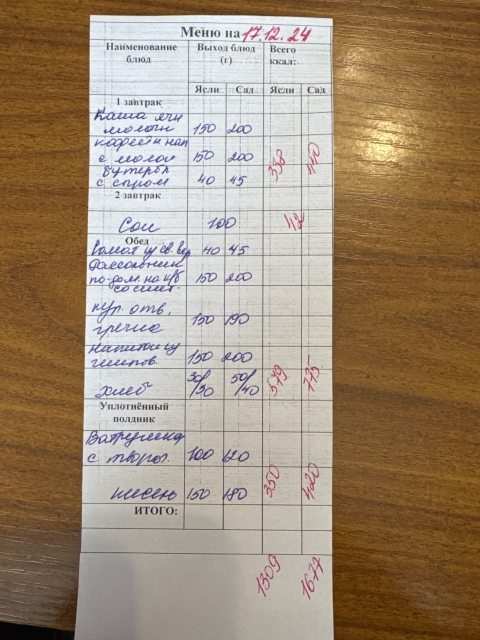 Меню на 17.12.24
Наименование блюд Выход блюд (г) Всего ккал:
Ясли Сад Ясли Сад
1 завтрак
Каша ячн
молочн 150 200
кофейн нап
с молок 150 200
бутерб
с сыром 40 45 338 440
2 завтрак
Сок 100 42
Обед
Салат из св. 40 45
Рассольник
по-дом. на к/б 150 200
со смет.
кур. отв,
гречка 150 190
Напиток из
шипов. 150 200
хлеб 30/30 50/40 579 775
Уплотнённый
полдник
Ватрушка
с творог. 100 120
кисель 150 180 350 420
ИТОГО:
1309 1677